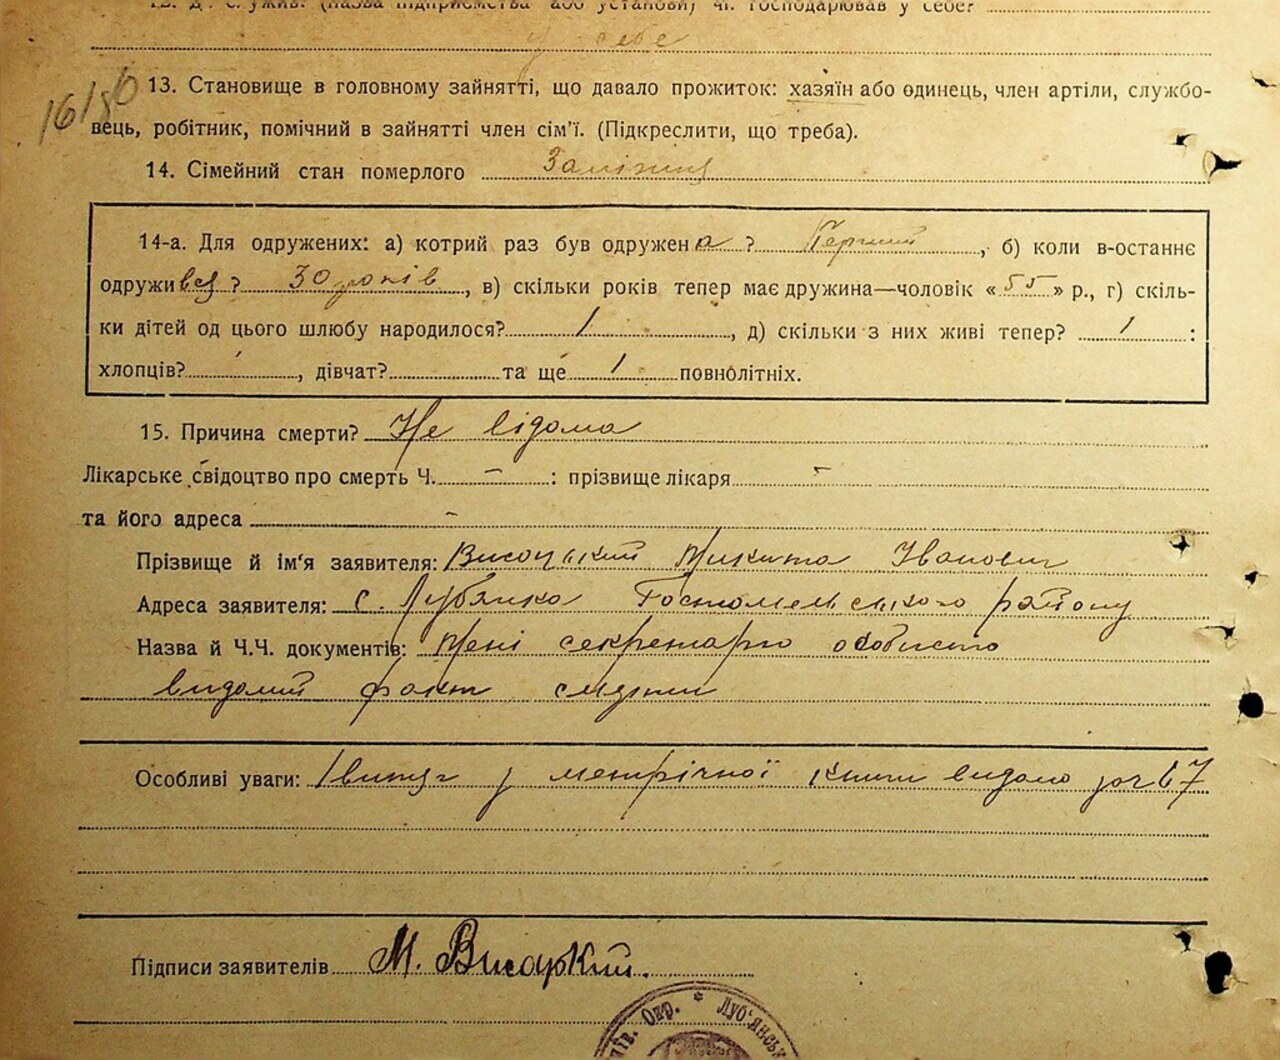 12. Де служив: (назва підприємства або установи) чи господарював у себе?
у себе
16/50
13. Становище в головному зайнятті, що давало прожиток: хазяїн або одинець, член артіли, службо-
вець, робітник, помічний в зайнятті член сім'ї. (Підкреслити, що треба).
14. Сімейний стан померлого
14-а. Для одружених: а) котрий раз був одружена? Перший, б) коли в-останнє
одруживсь? 30 років, в) скільки років тепер має дружина—чоловік «55» р., г) скіль-
ки дітей од цього шлюбу народилося? 1, д) скільки з них живі тепер? 1 :
хлопців?, дівчат? та ще 1 повнолітніх.
15. Причина смерти? Не відома
Лікарське свідоцтво про смерть Ч. — : прізвище лікаря —
та його адреса —
Прізвище й ім'я заявителя: Микита Іванович
Адреса заявителя: с. Лубянка Гостомельського району
Назва й Ч.Ч. документів: Мені секретарю особисто
видомий факт смерти
Особливі уваги: Івитяг з метрічної книги видано за № 67
Підписи заявителів М.
Київ. Окр. * Луб'янськ